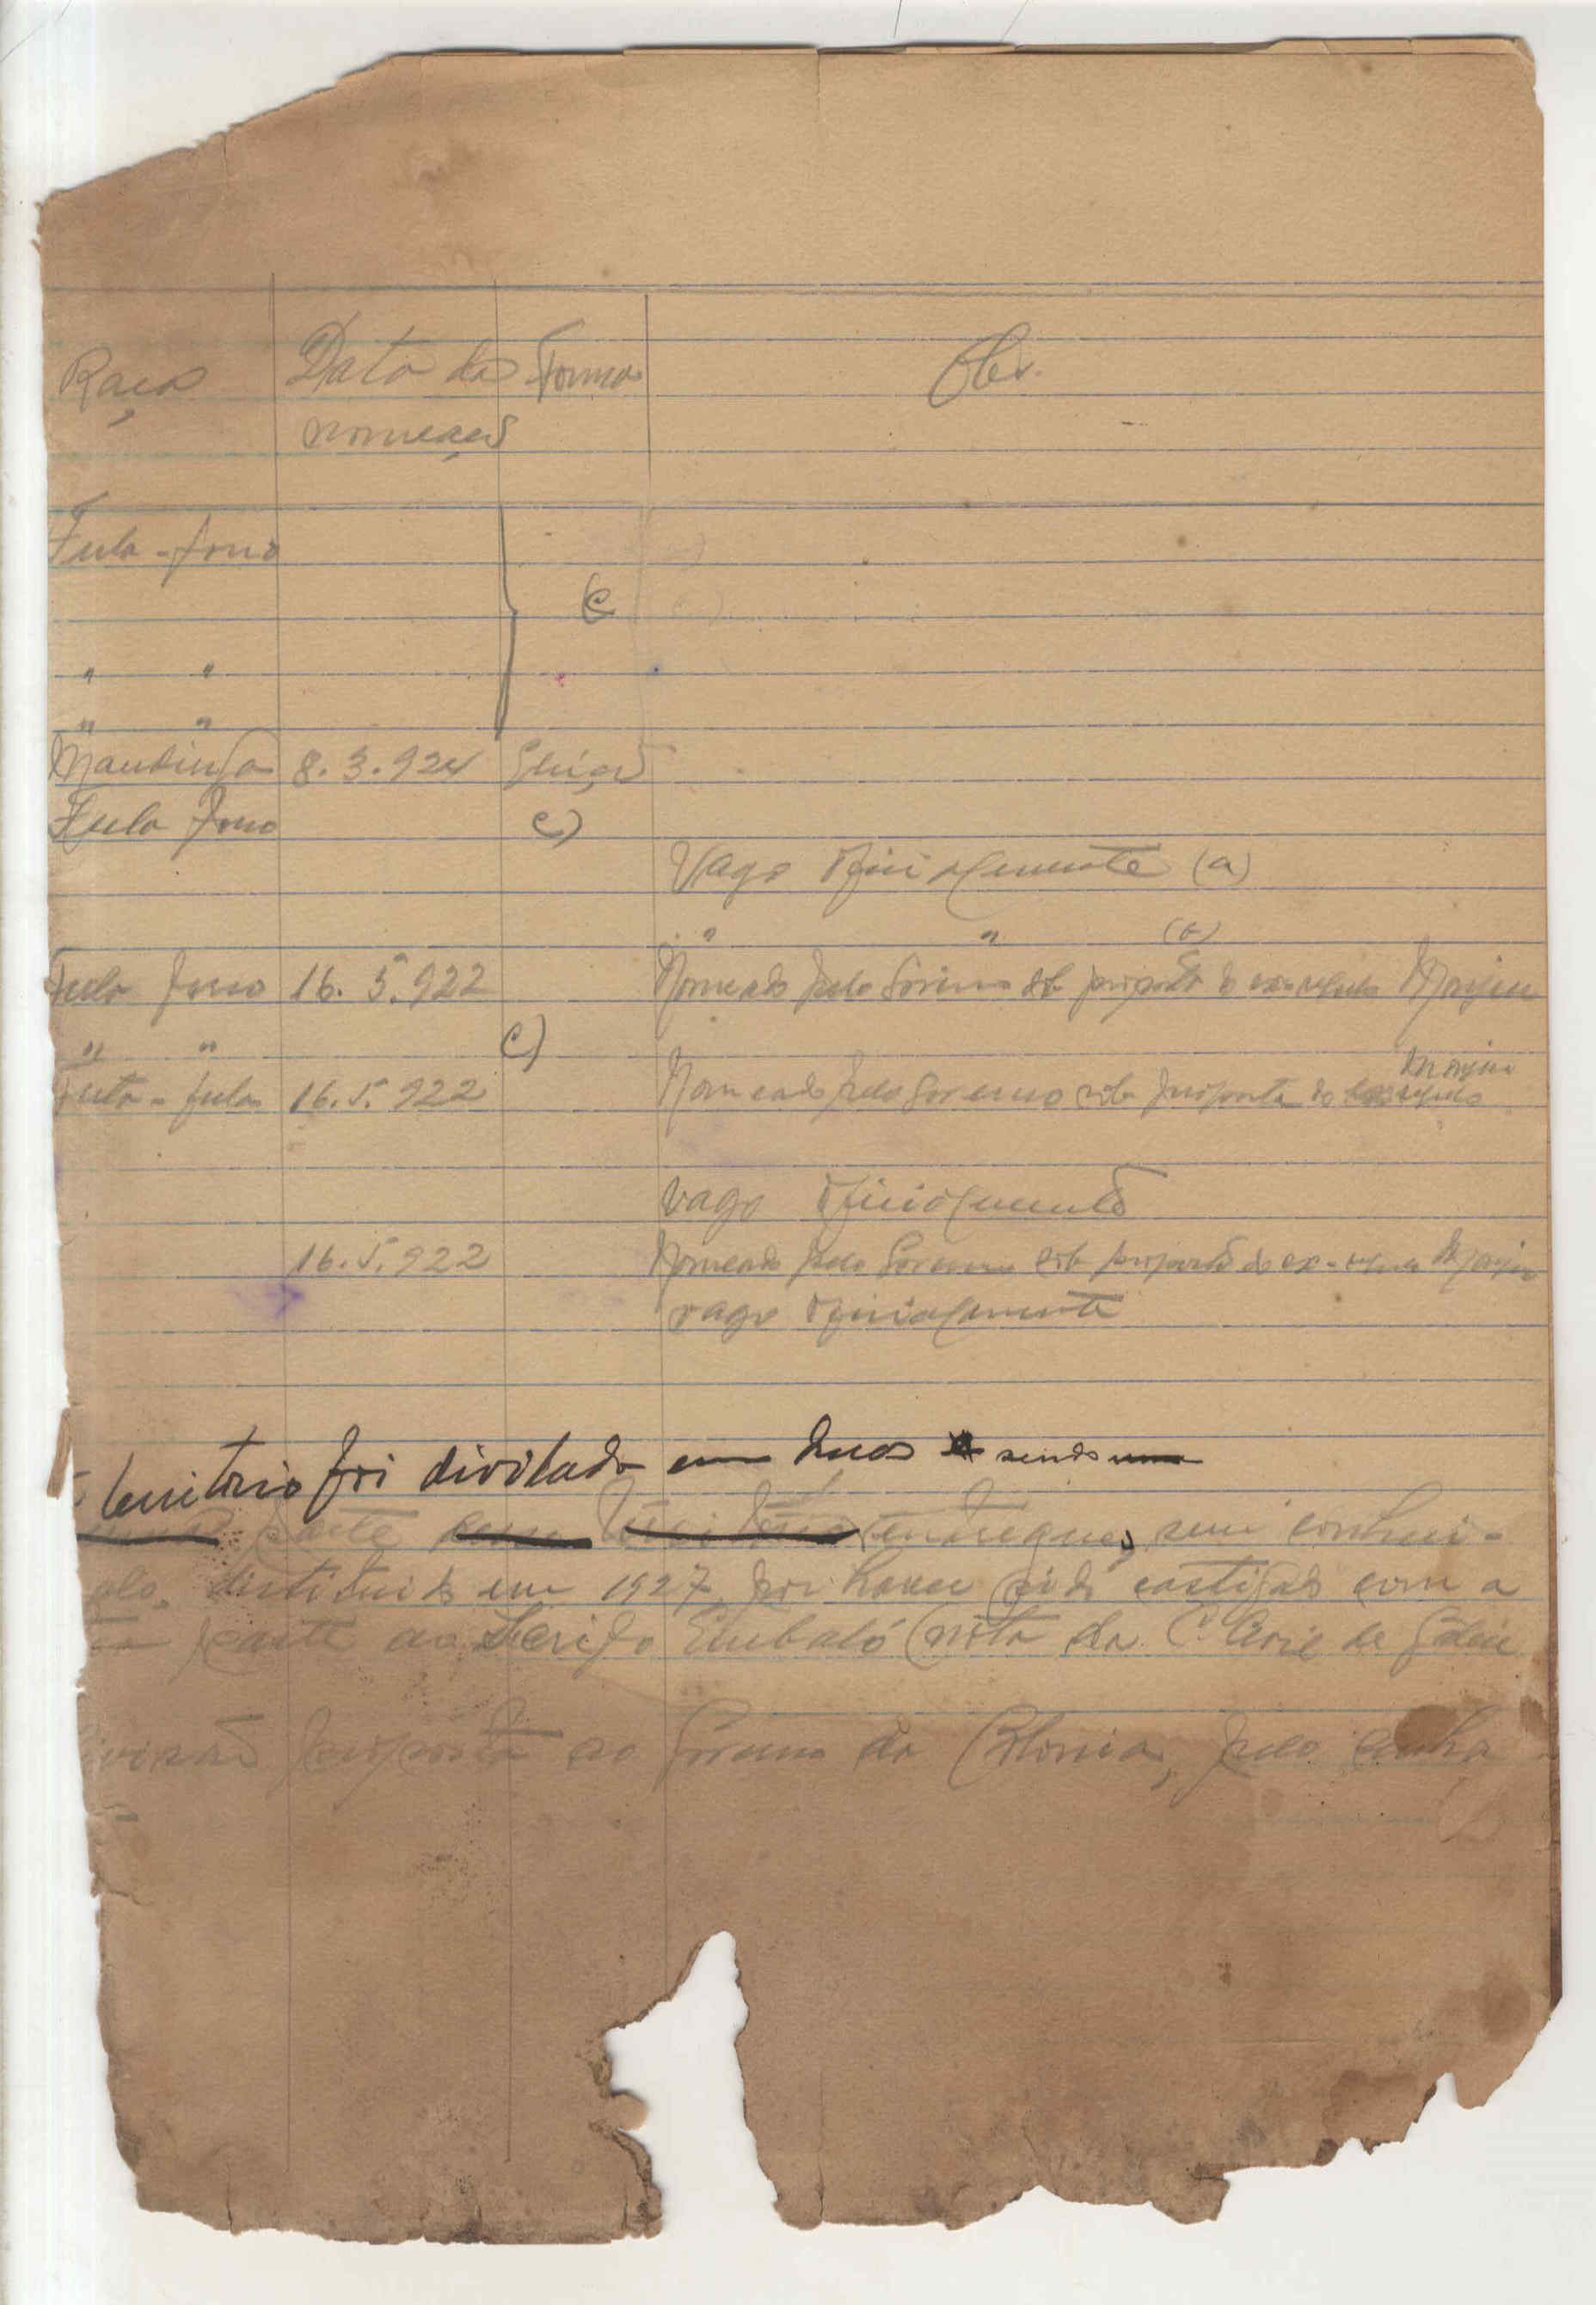 Raça Data da Forma Obs.
nomeação
Fula-forro
(c
" "
" "
Mandinga 8.3.924 Eleição
Fula forro c)
Vago oficialmente (a)
" " (b)
Fula forro 16.5.922 Nomeado pelo Governo sob proposta do ex-regulo Monjur
" " c)
Monjur
Futa-fula 16.5.922 Nomeado pelo Governo sob proposta do ex regulo
vago oficialmente
16.5.922 Nomeado pelo Governo sob proposta do ex-regulo Monjur
vago oficialmente
territorio foi dividido em duas sendo uma
parte entregue, sem conheci-
destituido em 1927, por haver sido castigado com a
parte ao Serifo Embaló (nota da
divisão proposta ao Governo da Colonia, pelo